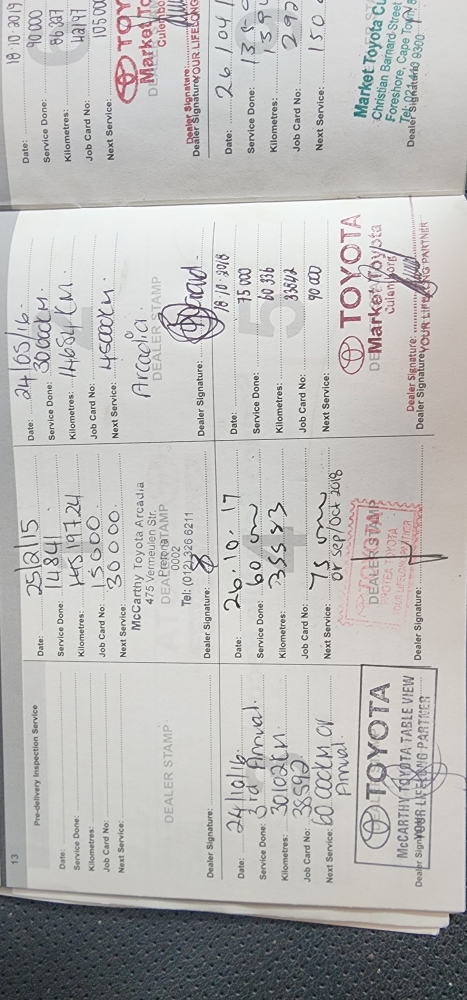 13
Pre-delivery Inspection Service
Date:
Service Done:
Kilometres:
Job Card No:
Next Service:
DEALER STAMP
Dealer Signature:
Date: 25/2/15
Service Done: 14841
Kilometres: HS19724
Job Card No: 15000
Next Service: 30000
McCarthy Toyota Arcadia
475 Vermeulen Str.
DEALER STAMP
Pretoria
0002
Tel: (012) 326 6211
Dealer Signature:
Date: 24/05/16
Service Done: 30000KM
Kilometres: 14654 KM
Job Card No:
Next Service: 45000KM
Arcadia
DEALER STAMP
Dealer Signature:
Date: 24/10/16
Service Done: 3rd Annual
Kilometres: 30102KM
Job Card No: 38592
Next Service: 60 000KM or
Annual
TOYOTA
McCARTHY TOYOTA TABLE VIEW
YOUR LIFELONG PARTNER
Dealer Signature:
Date: 26.10.17
Service Done: 60
Kilometres: 35583
Job Card No:
Next Service: 75
or sep/oct 2018
DEALER STAMP
TOYOTA
YOUR LIFELONG PARTNER
Dealer Signature:
Date: 18/10/2018
Service Done: 75 000
Kilometres: 60 336
Job Card No: 33842
Next Service: 90 000
TOYOTA
Market Toyota
Culemborg
Dealer Signature:
YOUR LIFELONG PARTNER
Dealer Signature:
Date: 18 10 2019
Service Done: 90000
Kilometres: 86327
Job Card No: 42197
Next Service: 105000
Market To
Culembo
Dealer Signature:
YOUR LIFELONG
Dealer Signature:
Date: 26/04/
Service Done: 13
Kilometres:
Job Card No: 292
Next Service: 150
Market Toyota Cu
Christian Barnard Street
Foreshore, Cape Town 8
Tel: 021 410 9300
Dealer Signature: